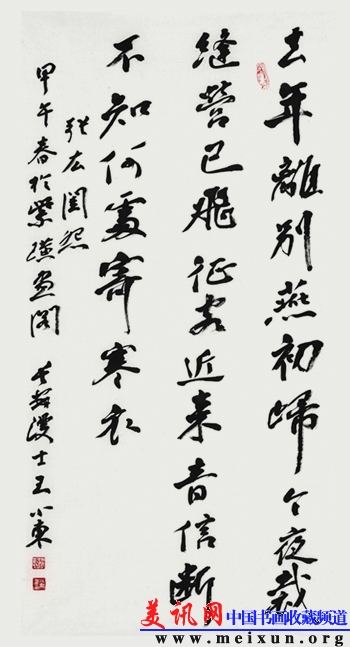 去年離別燕初歸今夜裁
縫營已飛征客近來音信斷
不知何處寄寒衣
張 閨怨
甲午春於紫 畫閣 漫士王小東
美讯网 中国书画收藏频道
www.meixun.org